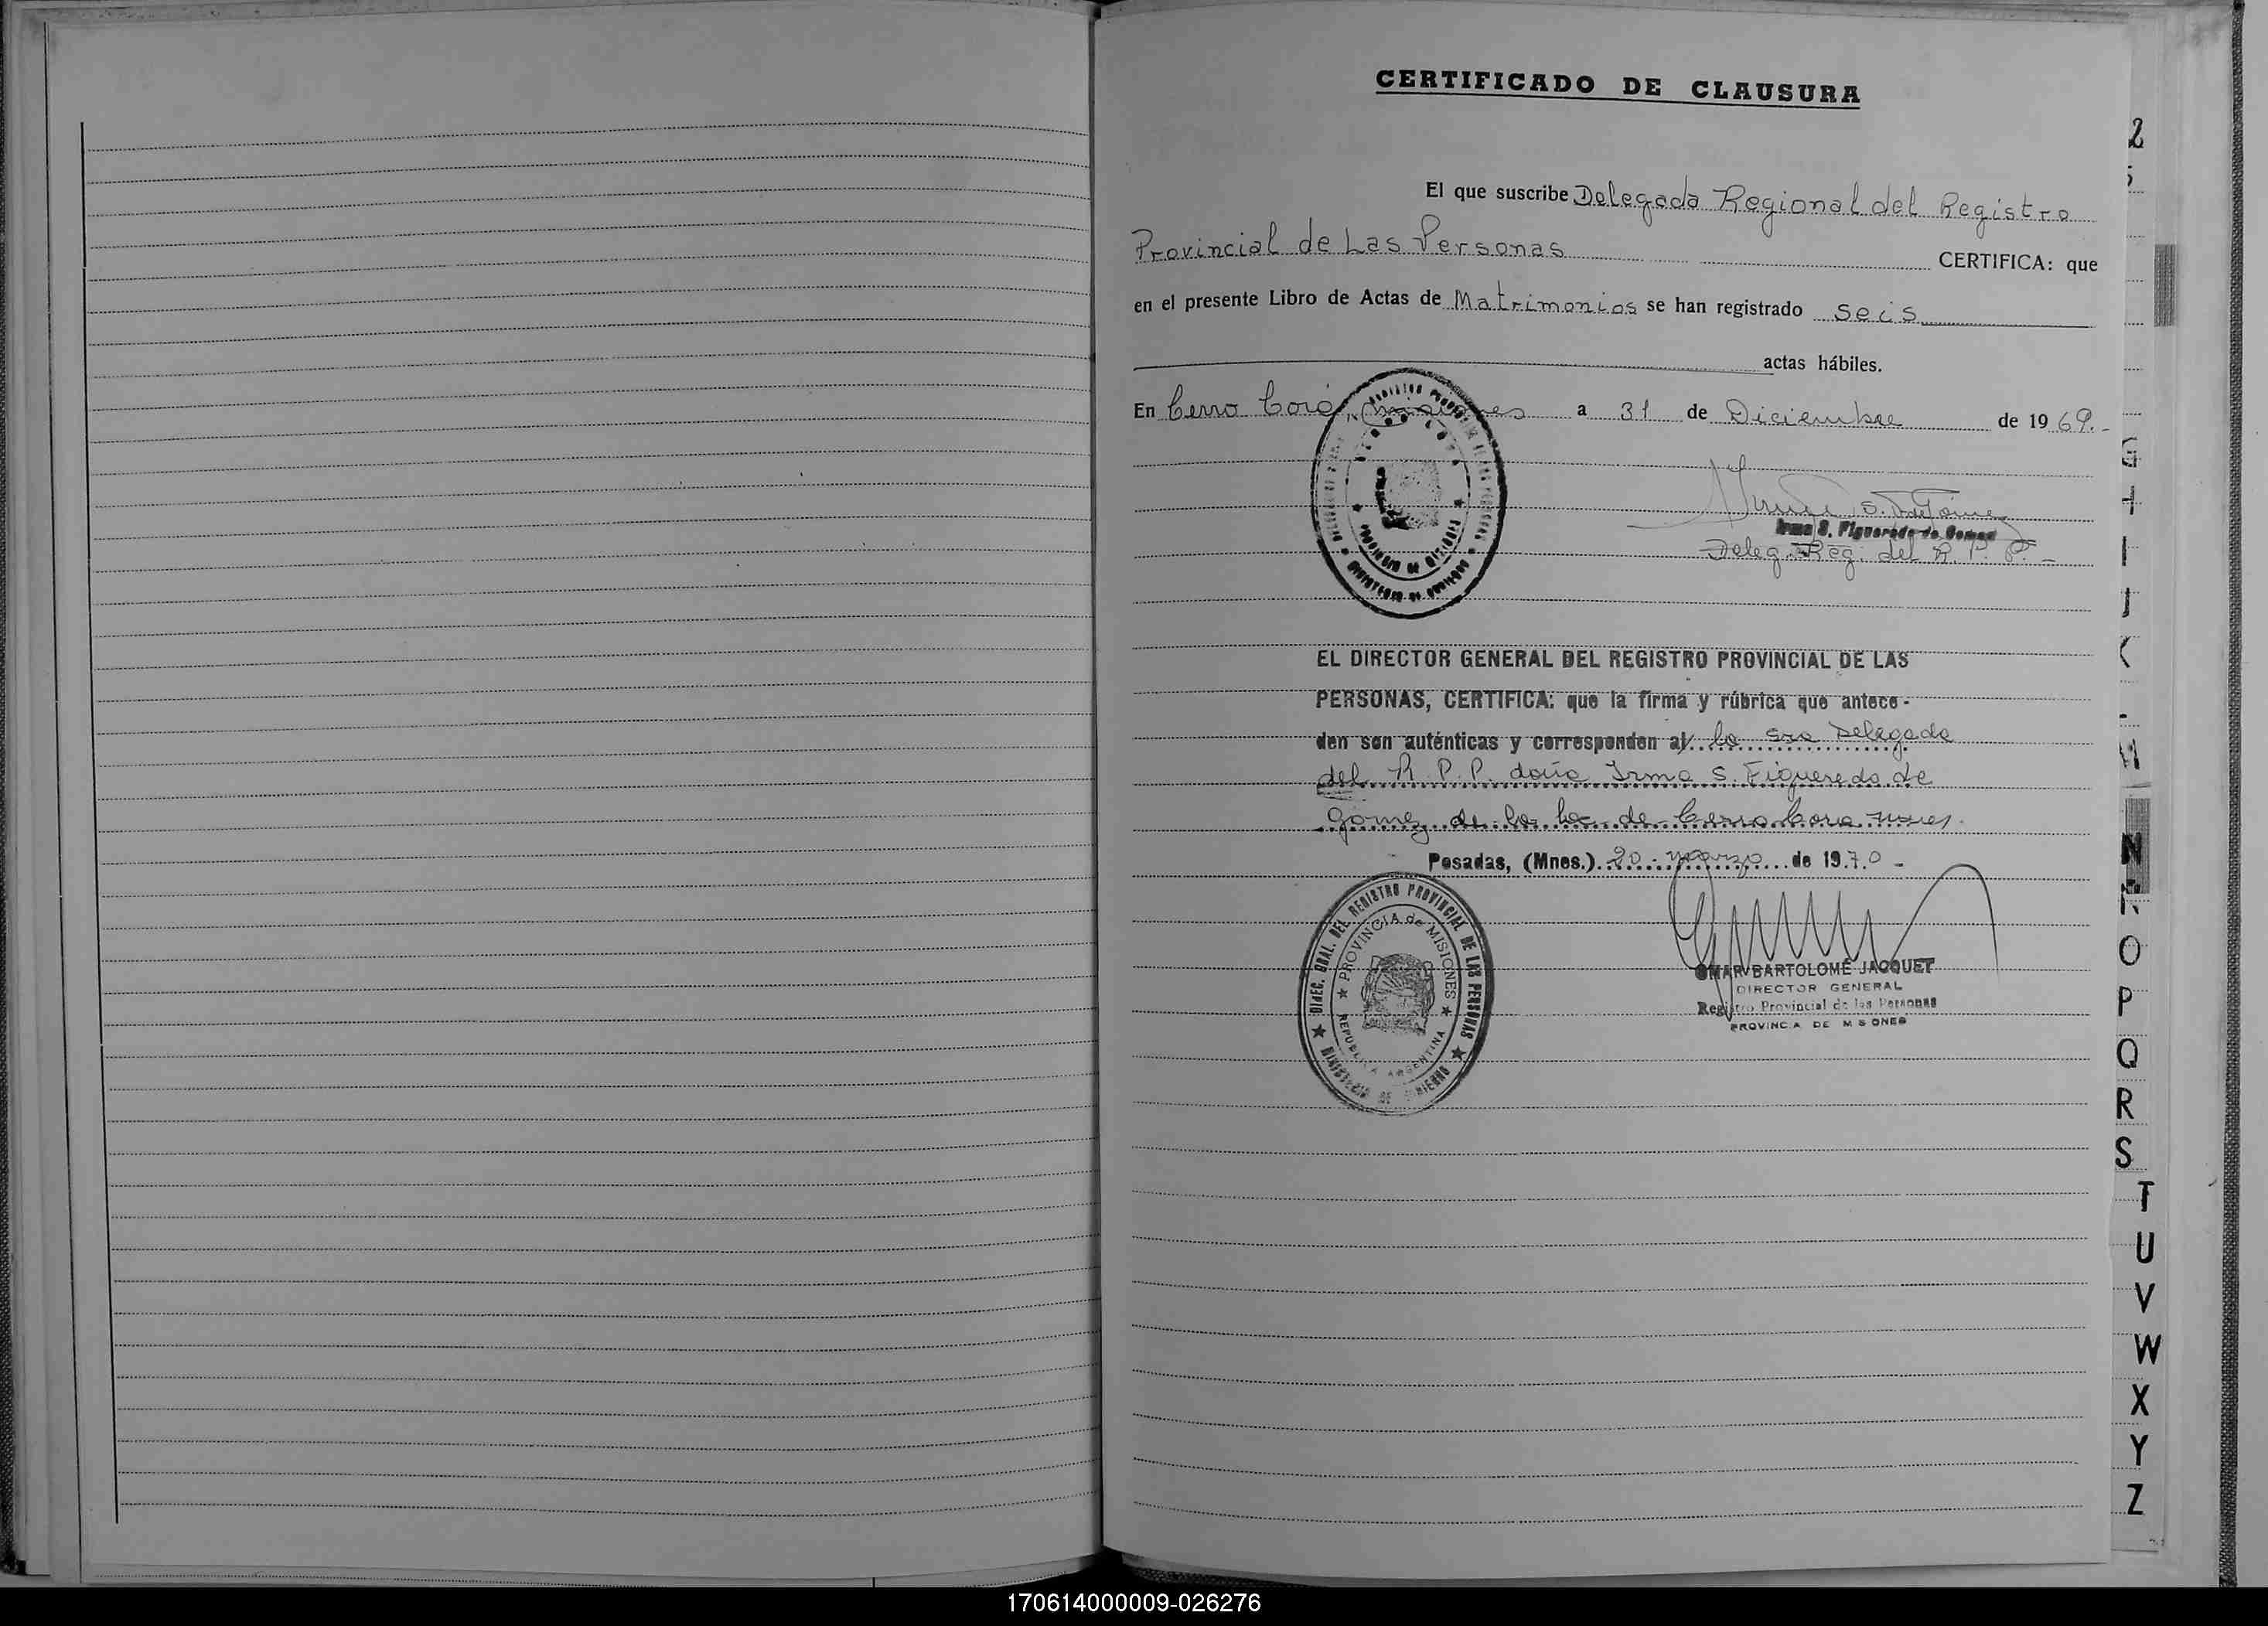 CERTIFICADO DE CLAUSURA
El que suscribe Delegada Regional del Registro
Provincial de Las Personas CERTIFICA: que
en el presente Libro de Actas de Matrimonios se han registrado Seis
actas hábiles.
En Cerro Corá, Misiones a 31 de Diciembre de 1969.-
Irma S. Figueredo de Gomez
Deleg. Reg. del R. P. P. -
EL DIRECTOR GENERAL DEL REGISTRO PROVINCIAL DE LAS
PERSONAS, CERTIFICA: que la firma y rúbrica que antece-
den son auténticas y corresponden a la Sra Delegada
del R. P. P. doña Irma S. Figueredo de
Gomez de la loc. de Cerro Cora
Posadas, (Mnes.) 20 - marzo de 1970 -
DIREC. GRAL. DEL REGISTRO PROVINCIAL DE LAS PERSONAS
PROVINCIA de MISIONES
REPUBLICA ARGENTINA
MINISTERIO DE GOBIERNO
OMAR BARTOLOMÉ JACQUET
DIRECTOR GENERAL
Registro Provincial de las Personas
PROVINCIA DE MISIONES
G
H
I
J
K
L
M
N
O
P
Q
R
S
T
U
V
W
X
Y
Z
170614000009-026276